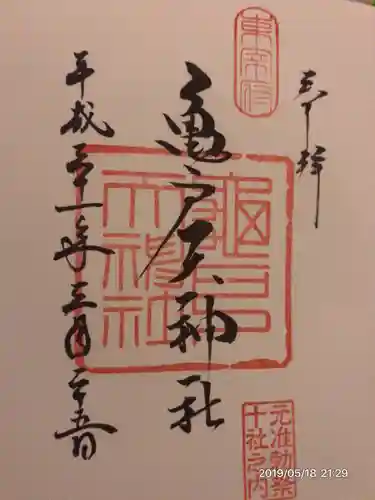 奉拝
東宰府
亀戸天神社
龜戸天神社
平成三十一年三月二十五日
元准勅祭
十社之内
2019/05/18 21:29